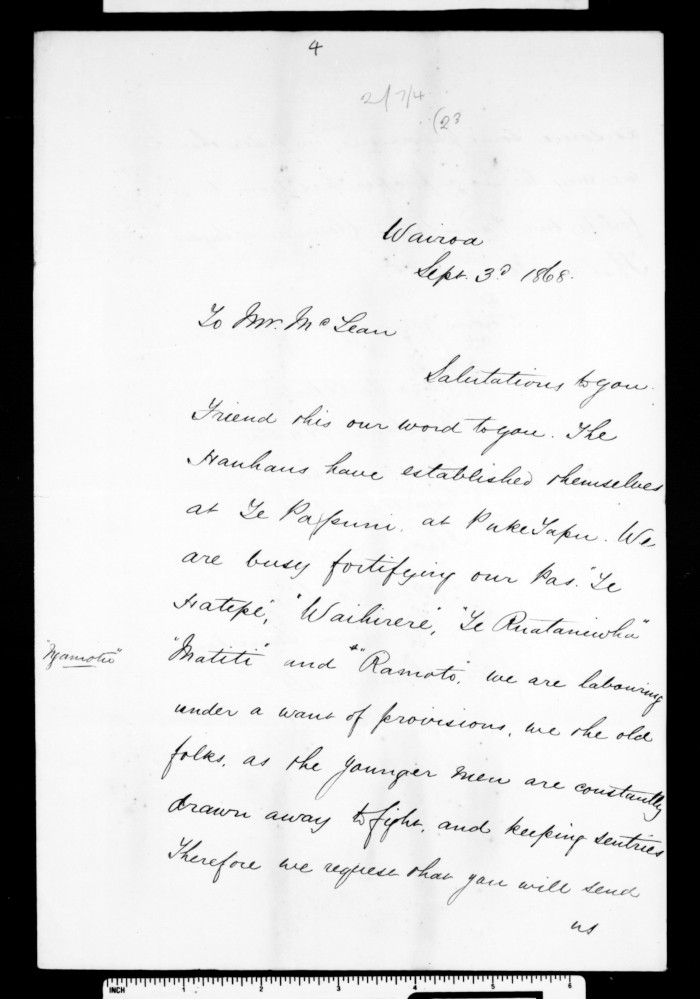 4
2/7/4
(23
Wairoa
Sept. 3d 1868.
To Mr. McLean
Salutations to you.
Friend this our word to you. The
Hauhaus have established themselves
at Te Papuni. at PukeTapu. We
are busy fortifying our Pas. "Te
Hatepe", "Waihirere", "Te Ruataniwha"
"Ngamotu"
"Matiti" and "Ramoto", we are labouring
under a want of provisions, we the old
folks, as the younger men are constantly
drawn away to fight, and keeping sentries
Therefore we request that you will send
us
INCH 1 2 3 4 5 6